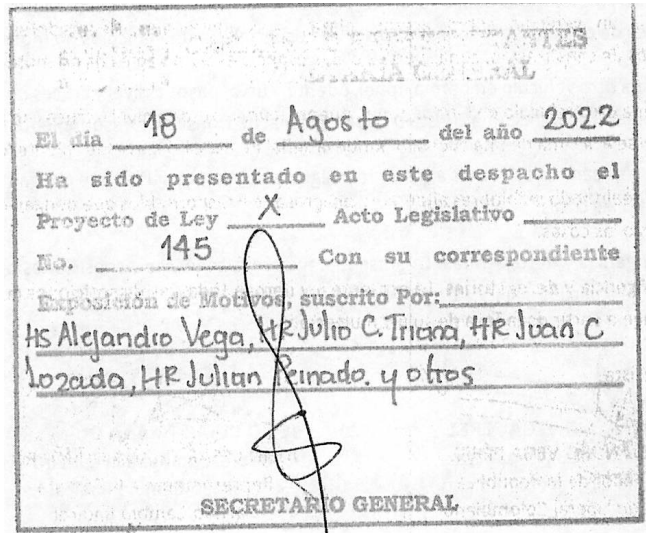 GENERAL
El día 18 de Agosto del año 2022
Ha sido presentado en este despacho el
Proyecto de Ley X Acto Legislativo
No. 145 Con su correspondiente
Exposición de Motivos, suscrito Por:
HS Alejandro Vega, HR Julio C. Triana, HR Juan C
Lozada, HR Julian Peinado. y otros
SECRETARIO GENERAL